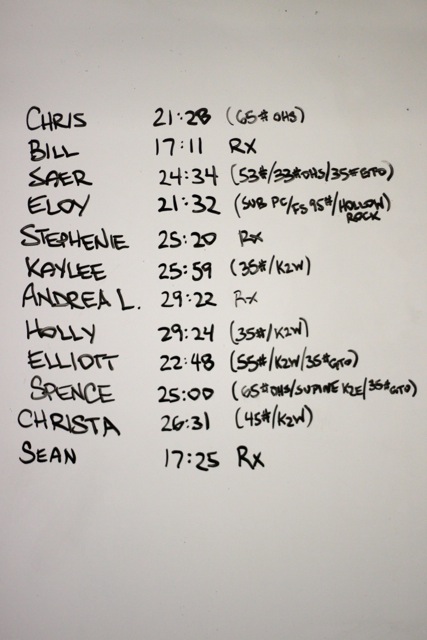 CHRIS 21:28 (65# OHS)
BILL 17:11 RX
SAER 24:34 (53#/33#OHS/35#GTO)
ELOY 21:32 (SUB PC/FS 95#/HOLLOW
ROCK)
STEPHENIE 25:20 RX
KAYLEE 25:59 (35#/K2W)
ANDREA L. 29:22 RX
HOLLY 29:24 (35#/K2W)
ELLIOTT 22:48 (55#/K2W/35#GTO)
SPENCE 25:00 (65#OHS/SUPINE K2E/35#GTO)
CHRISTA 26:31 (45#/K2W)
SEAN 17:25 RX